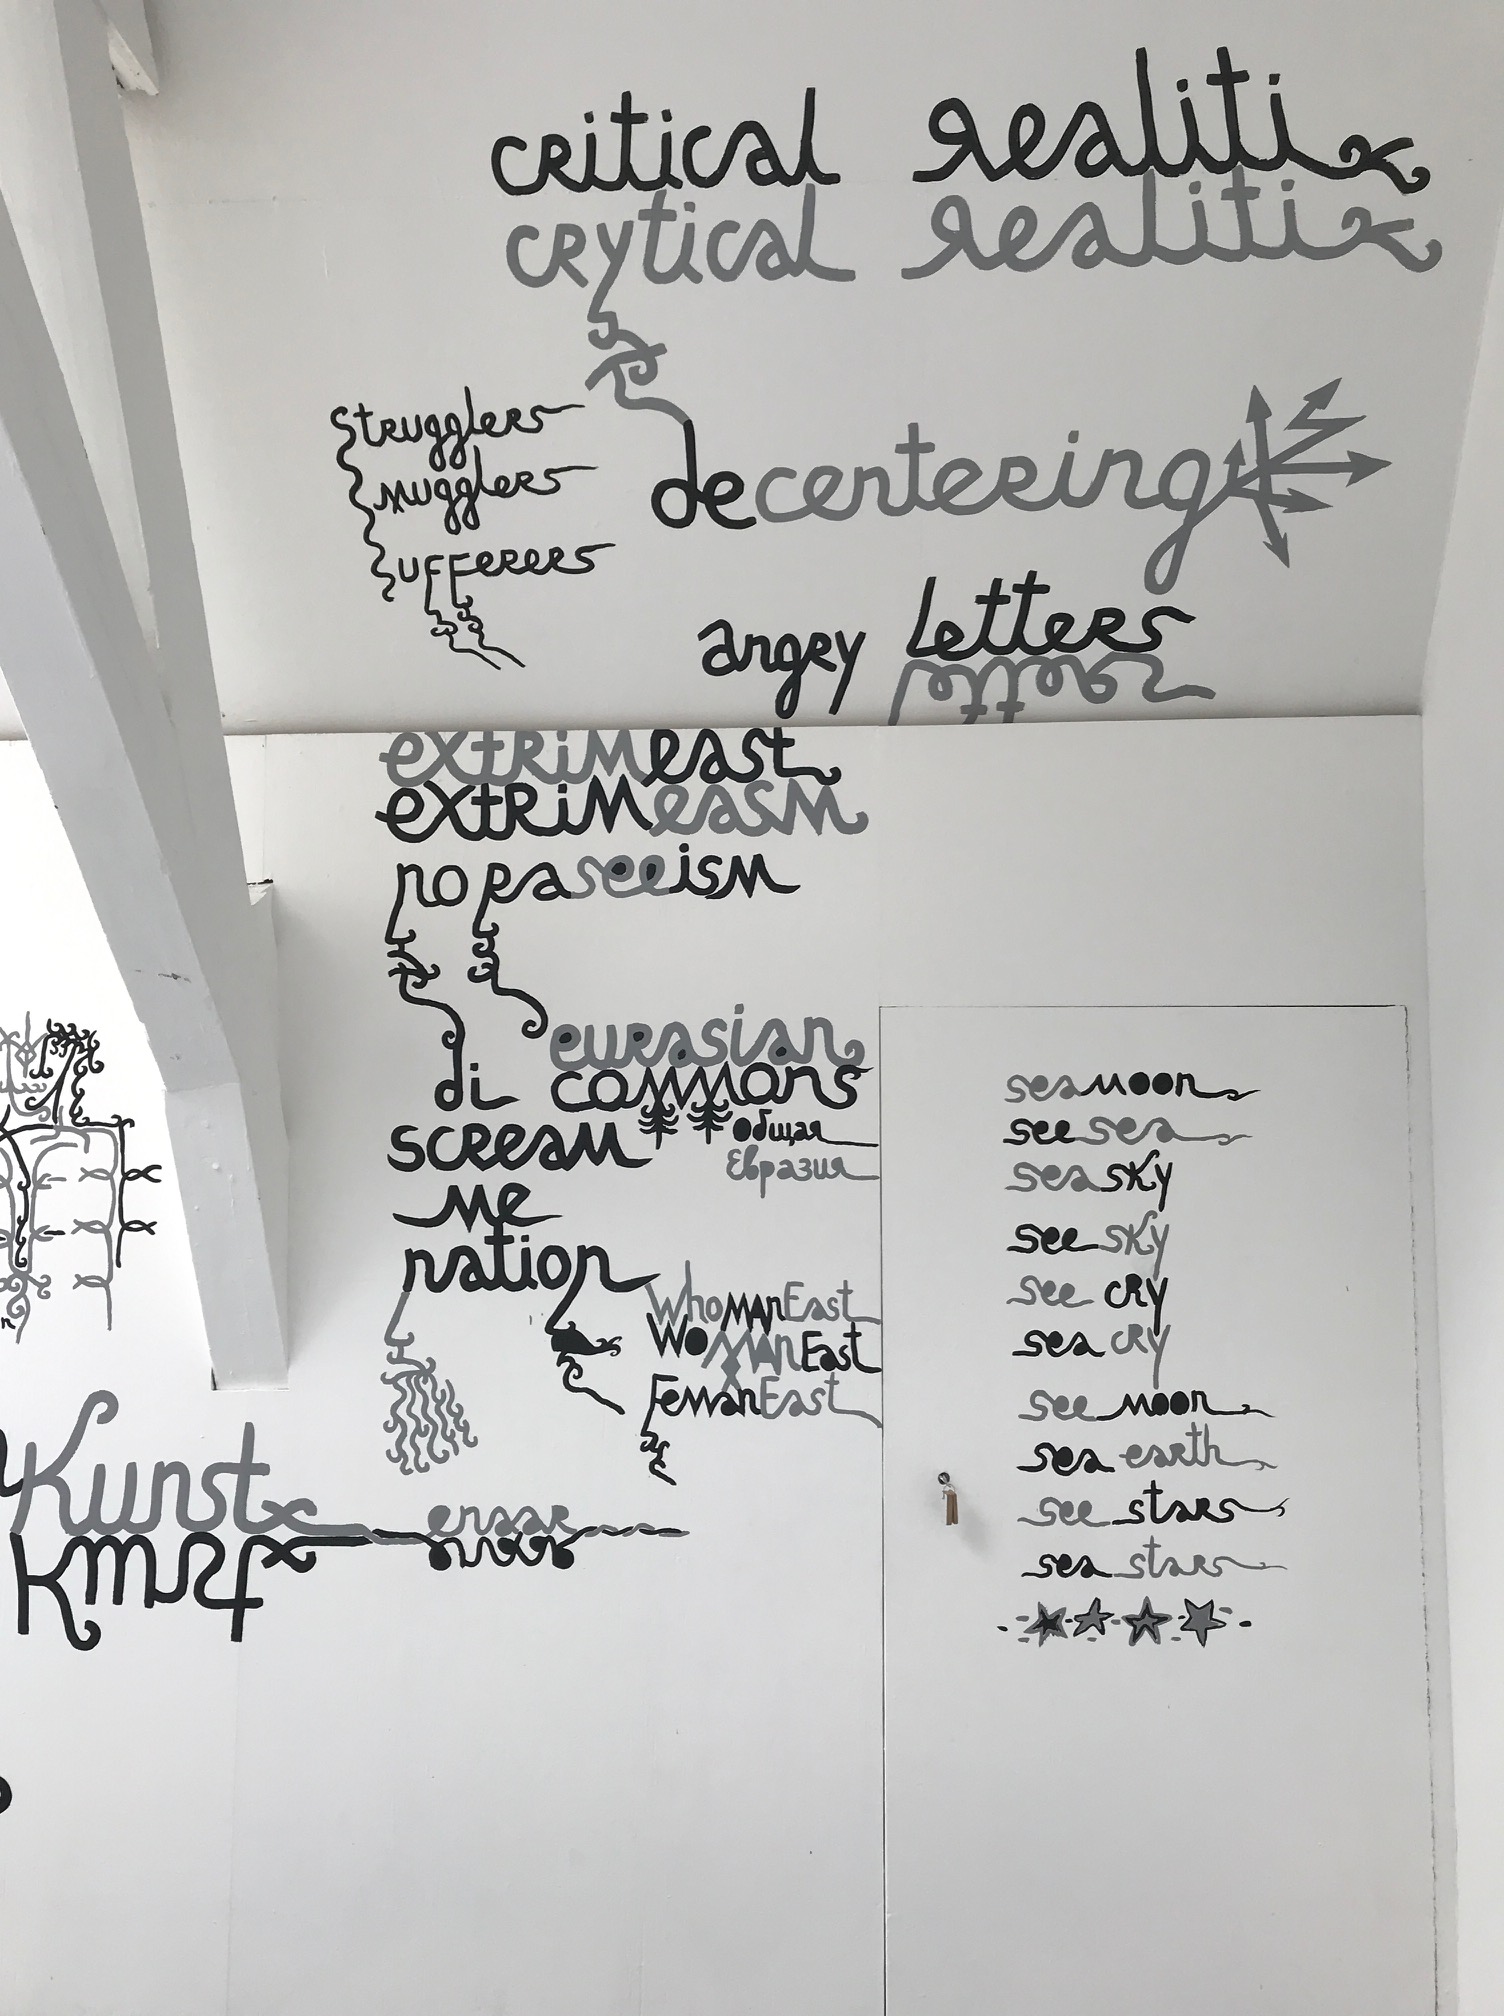 critical Realiti
crytical Realiti
strugglers
smugglers
sufferers
decentering
angry letters
extrimeast
extrimeasm
no paseeism
eurasian
di commons
scream
общая
Евразия
me
nation
WhoMAnEast
WoMAnEast
FemmanEast
Kunst
seamoon
seesea
seasky
see sky
see cry
sea cry
see moon
sea earth
see stars
sea stars